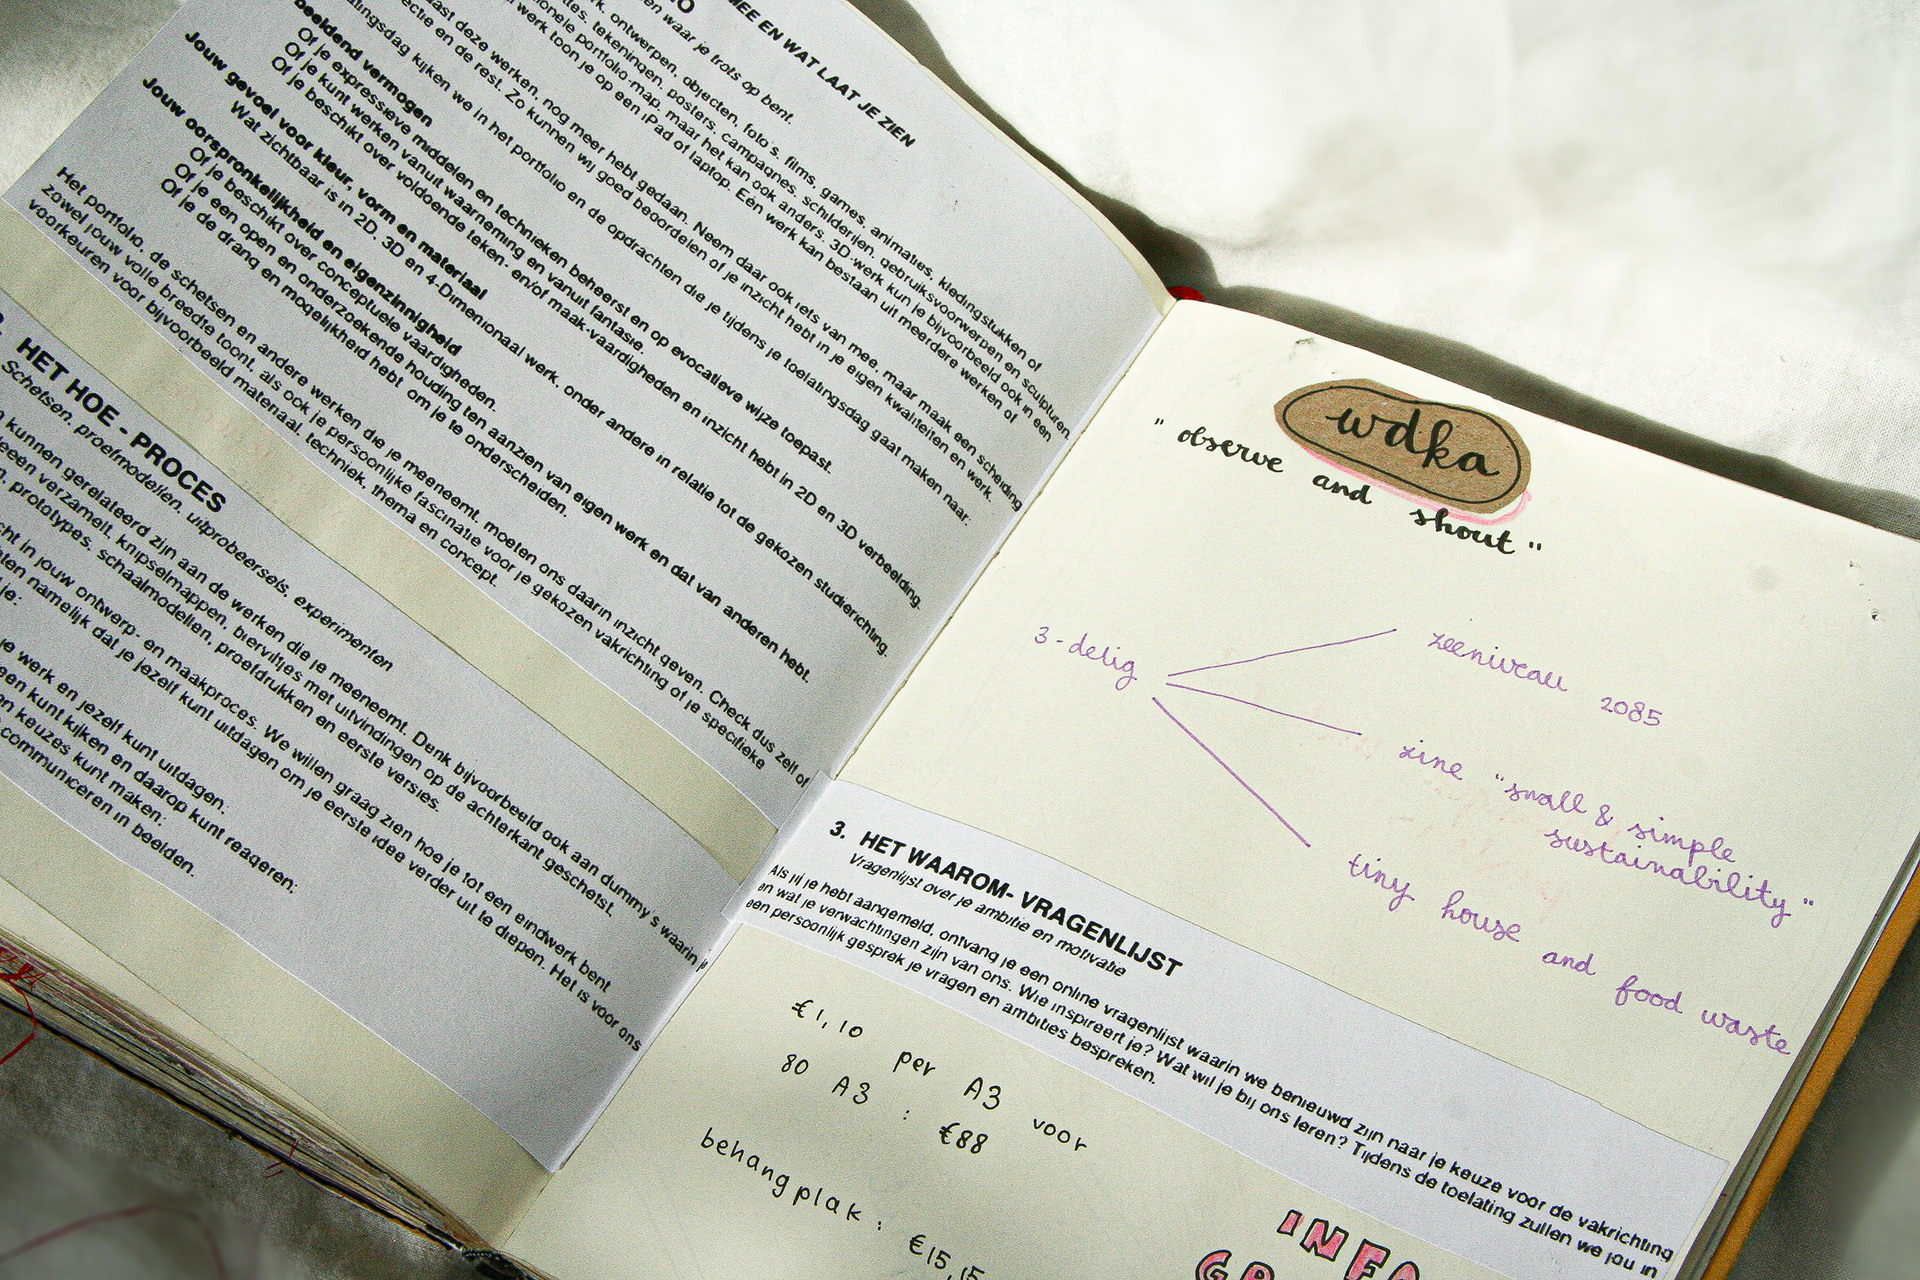 MEE EN WAT LAAT JE ZIEN
en waar je trots op bent.
ontwerpen, objecten, foto's, films, games, animaties, kledingstukken of
tekeningen, posters, campagnes, schilderijen, gebruiksvoorwerpen en sculpturen,
portfolio-map, maar het kan ook anders. 3D-werk kun je bijvoorbeeld ook in een
werk toon je op een iPad of laptop. Eén werk kan bestaan uit meerdere werken of
naast deze werken, nog meer hebt gedaan. Neem daar ook iets van mee, maar maak een scheiding
en de rest. Zo kunnen wij goed beoordelen of je inzicht hebt in je eigen kwaliteiten en werk.
kijken we in het portfolio en de opdrachten die je tijdens je toelatingsdag gaat maken naar:
beeldend vermogen
Of je expressieve middelen en technieken beheerst en op evocatieve wijze toepast.
Of je kunt werken vanuit waarneming en vanuit fantasie.
Of je beschikt over voldoende teken- en/of maak-vaardigheden en inzicht hebt in 2D en 3D verbeelding.
Jouw gevoel voor kleur, vorm en materiaal
Wat zichtbaar is in 2D, 3D en 4-Dimenionaal werk, onder andere in relatie tot de gekozen studierichting.
Jouw oorspronkelijkheid en eigenzinnigheid
Of je beschikt over conceptuele vaardigheden.
Of je een open en onderzoekende houding ten aanzien van eigen werk en dat van anderen hebt.
Of je de drang en mogelijkheid hebt om je te onderscheiden.
Het portfolio, de schetsen en andere werken die je meeneemt, moeten ons daarin inzicht geven. Check dus zelf of
zowel jouw volle breedte toont, als ook je persoonlijke fascinatie voor je gekozen vakrichting of je specifieke
voorkeuren voor bijvoorbeeld materiaal, techniek, thema en concept.
HET HOE - PROCES
Schetsen, proefmodellen, uitprobeersels, experimenten
kunnen gerelateerd zijn aan de werken die je meeneemt. Denk bijvoorbeeld ook aan dummy's waarin je
verzamelt, knipselmappen, bierviltjes met uitvindingen op de achterkant geschetst.
prototypes, schaalmodellen, proefdrukken en eerste versies.
in jouw ontwerp- en maakproces. We willen graag zien hoe je tot een eindwerk bent
namelijk dat je jezelf kunt uitdagen om je eerste idee verder uit te diepen. Het is voor ons
je:
je werk en jezelf kunt uitdagen:
een kunt kijken en daarop kunt reageren:
keuzes kunt maken:
communiceren in beelden.
wdka
" observe and shout "
3-delig
zeeniveau 2085
zine "small & simple
sustainability"
tiny house and food waste
3. HET WAAROM- VRAGENLIJST
Vragenlijst over je ambitie en motivatie
Als jij je hebt aangemeld, ontvang je een online vragenlijst waarin we benieuwd zijn naar je keuze voor de vakrichting
en wat je verwachtingen zijn van ons. Wie inspireert je? Wat wil je bij ons leren? Tijdens de toelating zullen we jou in
een persoonlijk gesprek je vragen en ambities bespreken.
€1,10 per A3 voor
80 A3 : €88
behangplak : €15,15